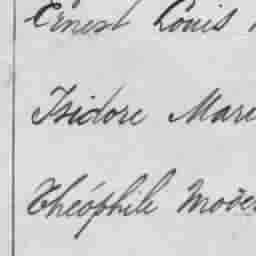 Ernest Louis
Isidore Mare
Théophile Mode